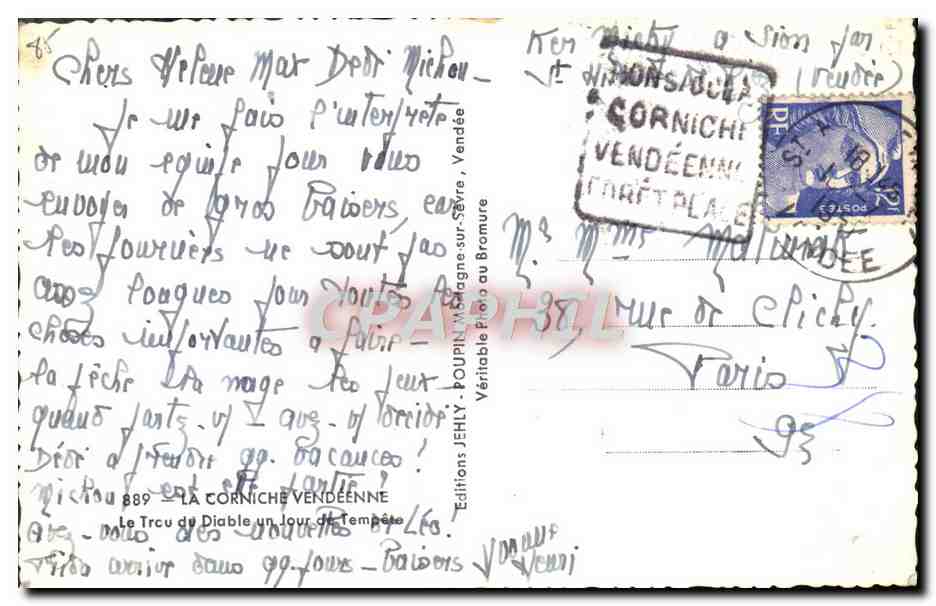 85
Ker Michy a Sion par
St H (Vendée)
Chers Helene Max Dédé Michou -
Je me fais l'interprète
de mon equipe pour vous
envoyer de gros baisers, car
les journées ne sont pas
assez longues pour toutes les
choses importantes a faire -
la pêche la nage les jeux -
quand partez-v/s - avez-v/s décidé
Dédé a prendre qq. vacances?
Michou est elle partie?
Avez-vous des nouvelles de Léo?
arrive dans qq. jours - Baisers
Henri
889 - LA CORNICHE VENDÉENNE
Le Trou du Diable un Jour de Tempête
Editions JEHLY - POUPIN Mortagne-sur-Sèvre, Vendée
Véritable Photo au Bromure
CORNICHE
VENDÉENNE
FORÊT PLAGE
RF
POSTES
12
ST
18
DÉE
Mr. Mme
38, rue de Clichy.
Paris
9e
CPAPHIL